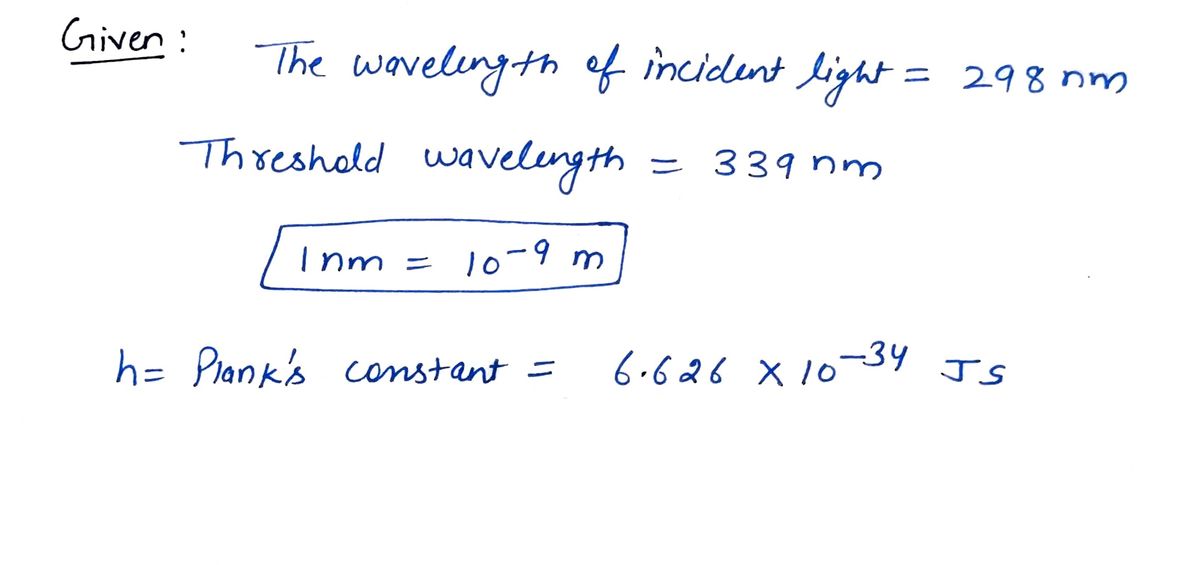 Given : The wavelength of incident light = 298 nm
Threshold wavelength = 339 nm
1 nm = 10⁻⁹ m
h = Plank's constant = 6.626 × 10⁻³⁴ JS